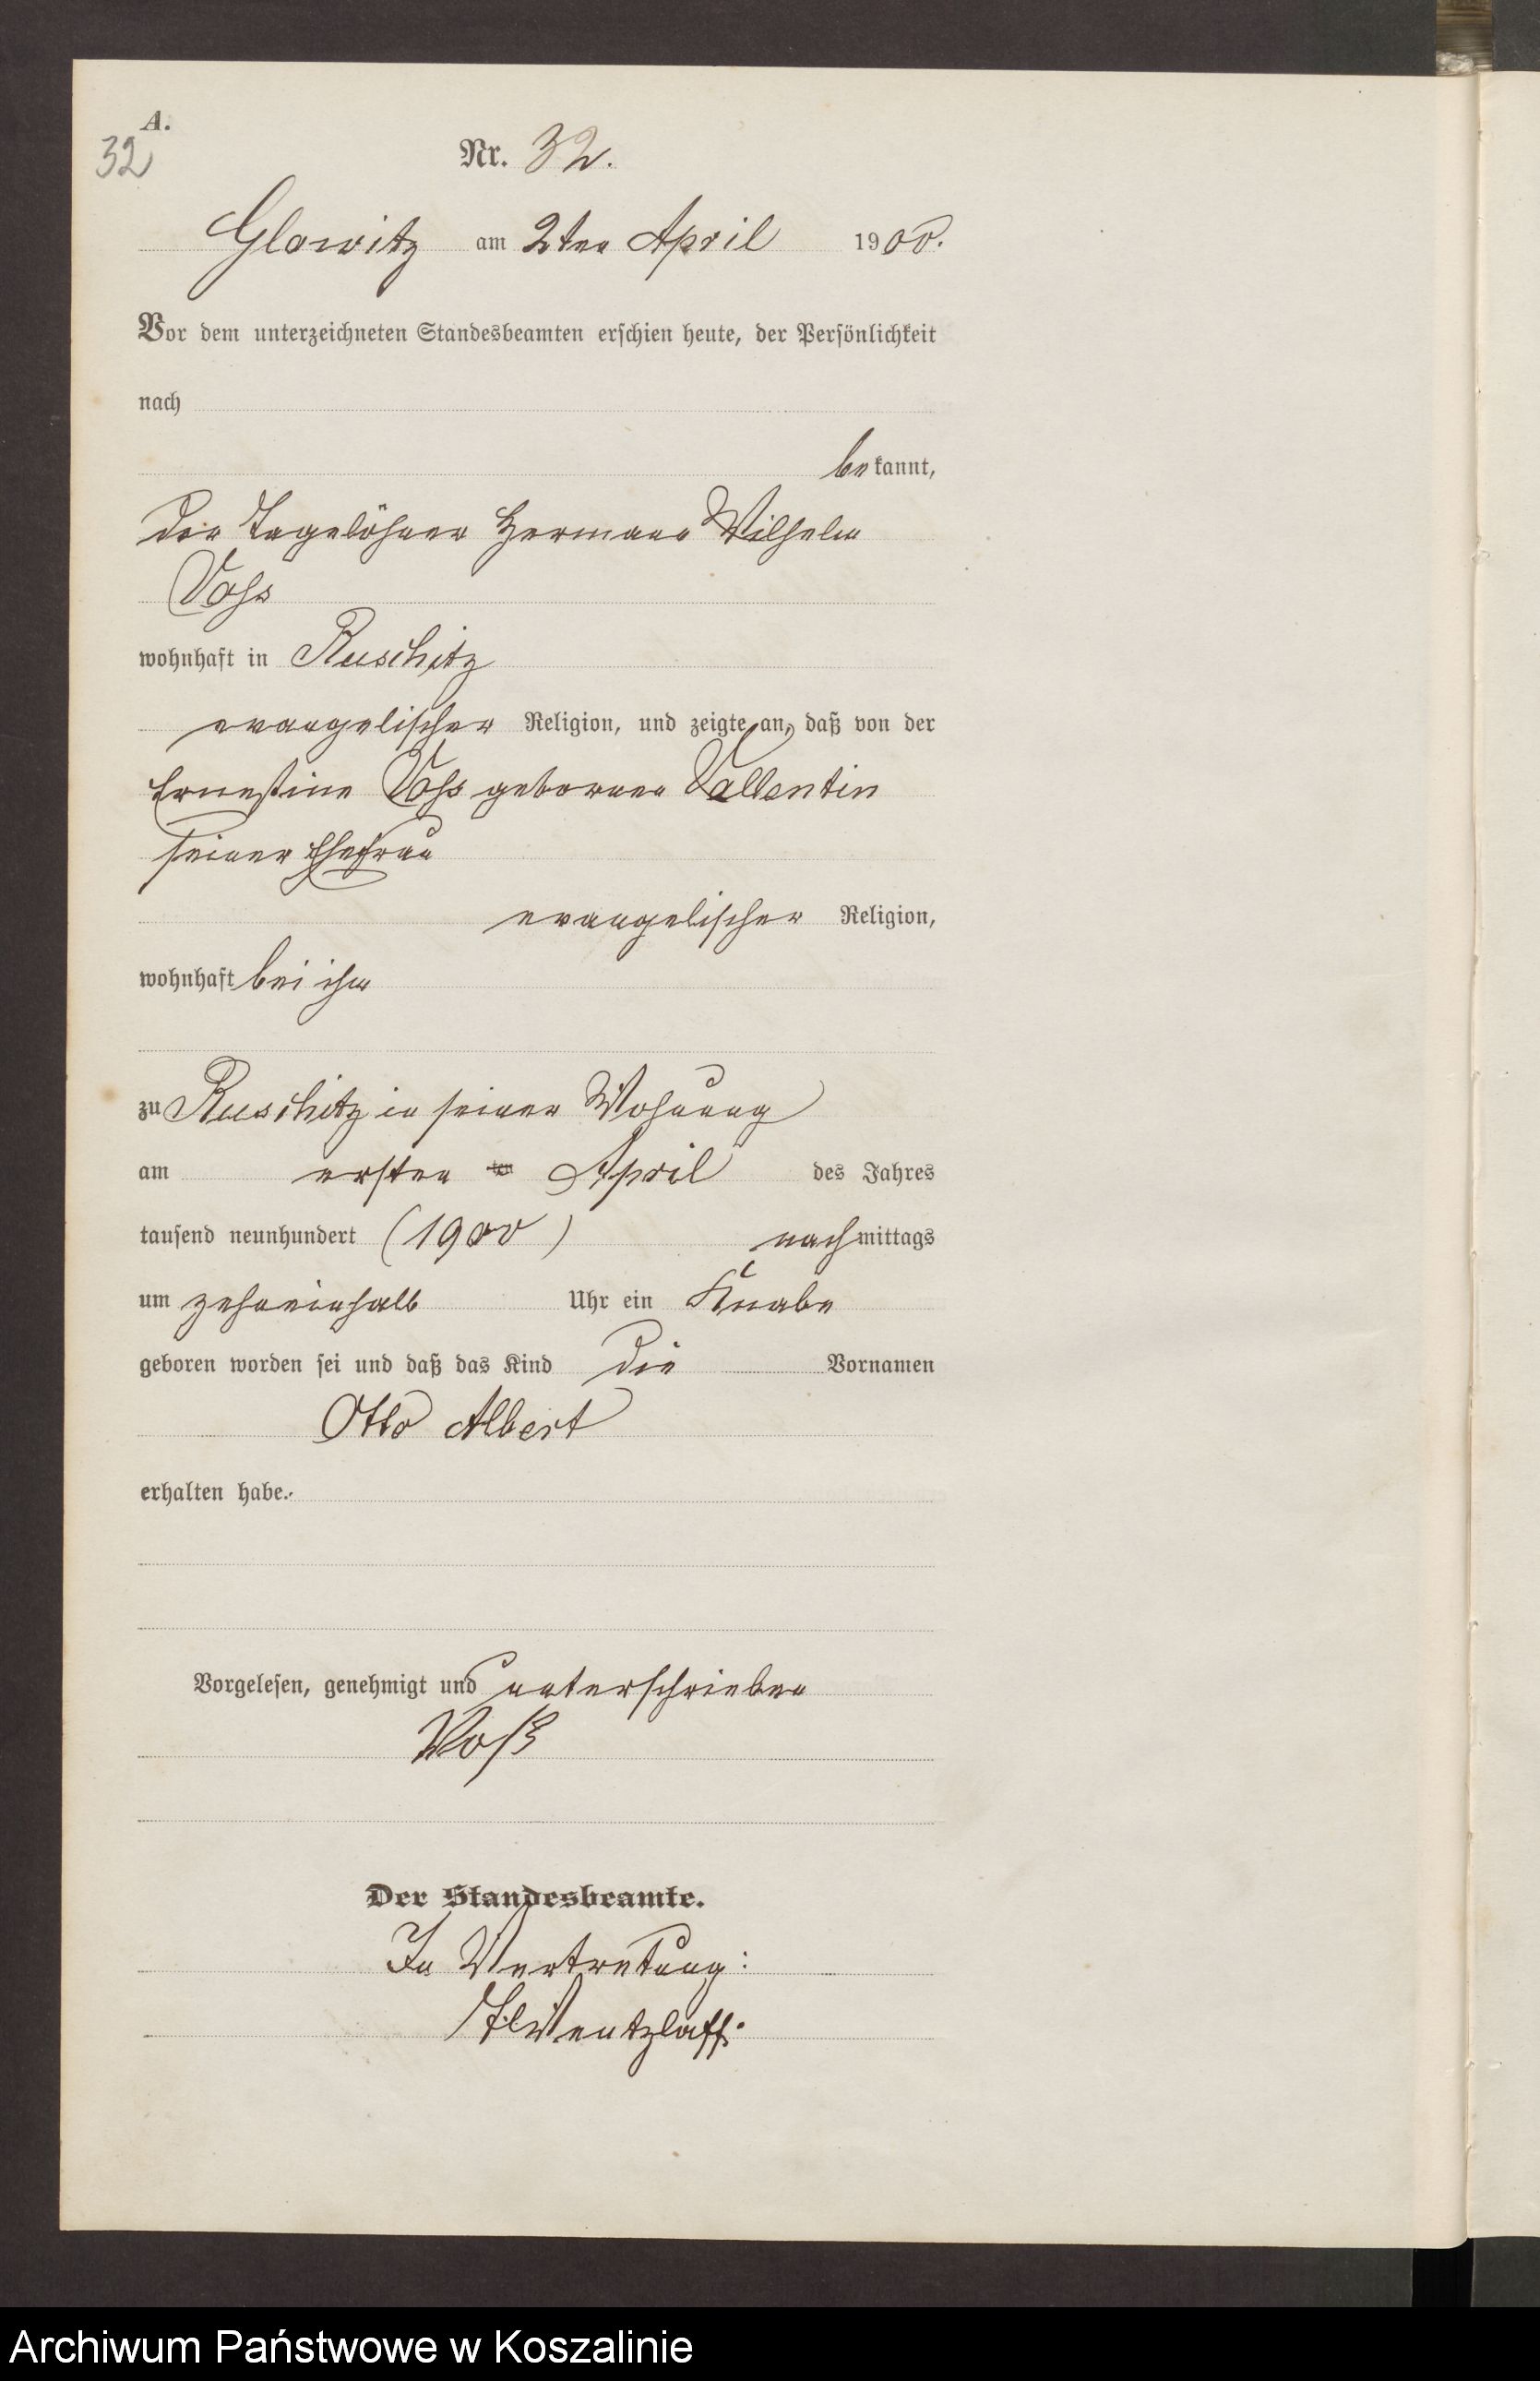 A.
32
Nr. 32.
Glowitz am 2ten April 1900.
Vor dem unterzeichneten Standesbeamten erschien heute, der Persönlichkeit
nach
bekannt,
der Tagelöhner Hermann Wilhelm
Voss
wohnhaft in Ruschitz
evangelischer Religion, und zeigte an, daß von der
Ernestine Voss geborenen Vallentin
seiner Ehefrau
evangelischer Religion,
wohnhaft bei ihm
zu Ruschitz in seiner Wohnung
am ersten April des Jahres
tausend neunhundert (1900) nachmittags
um zehneinhalb Uhr ein Knabe
geboren worden sei und daß das Kind die Vornamen
Otto Albert
erhalten habe.
Vorgelesen, genehmigt und unterschrieben
Voß
Der Standesbeamte.
In Vertretung:
Wentzlaff.
Archiwum Państwowe w Koszalinie